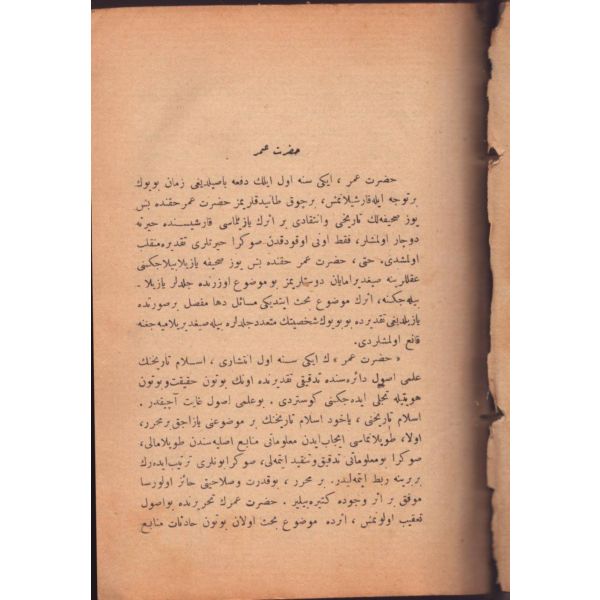 حضرت عمر
حضرت عمر ، ایکی سنه اول ایلك دفعه باصیلدیغی زمان بویوك
بر توجه ایله قارشیلانمش، برچوق طانیدقلریمز حضرت عمر حقنده بش
یوز صحیفه‌لك تاریخی و انتقادی بر اثرك یازیلماسی قارشیسنده حیرته
دوچار اولمشلر، فقط اونی اوقودقدن صوکرا حیرتلری تقدیره منقلب
اولمشدی. حتی ، حضرت عمر حقنده بش یوز صحیفه یازیلابیله‌جکنی
عقللرینه صیغدیرامایان دوستلریمز بو موضوع اوزرنده جلدلر یازیلا ـ
بیله‌جکنه، اثرك موضوع بحث ایتدیکی مسائل دها مفصل بر صورتده
یازیلدیغی تقدیرده بو بویوك شخصیتك متعدد جلدلره بیله صیغدیریلامیه‌جغنه
قانع اولمشلردی.
« حضرت عمر » ك ایکی سنه اول انتشاری ، اسلام تاریخنك
علمی اصول دائره‌سنده تدقیقی تقدیرنده اونك بوتون حقیقت و بوتون
هویتیله تجلی ایده‌جکنی کوستردی . بو علمی اصول غایت آچیقدر .
اسلام تاریخنی ، یاخود اسلام تاریخنك بر موضوعنی یازاجق بر محرر،
اولا، طوپلانماسی ایجاب ایدن معلوماتی منابع اصلیه‌سندن طوپلامالی،
صوکرا بو معلوماتی تدقیق و تنقید ایتمه‌لی، صوکرا بونلری ترتیب ایده‌رك
بربرینه ربط ایتمه‌لیدر. بر محرر ، بو قدرت و صلاحیتی حائز اولورسا
موفق بر اثر وجوده کتیره‌بیلیر . حضرت عمرك تحریرنده بو اصول
تعقیب اولونمش ، اثرده موضوع بحث اولان بوتون حادثات منابع